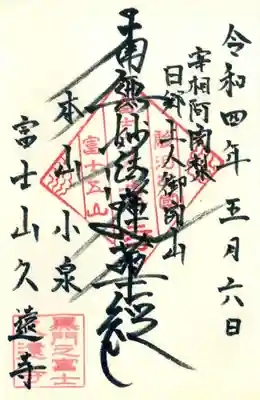 令和四年五月六日
宰相阿闍梨
日郷上人御開山
南無妙法蓮華経
本山小泉
富士山久遠寺
富士五山